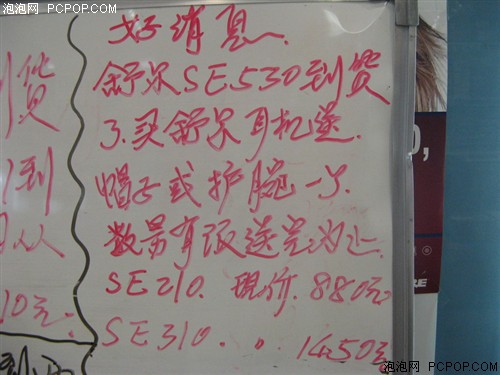 泡泡网 PCPOP.COM
好消息.
舒尔SE530到货
了.买舒尔耳机送
帽子或护腕一个.
数量有限送完为止
SE210. 现价. 880元
SE310. . . 1450元
到货
到
从
10元.
泡泡网 PCPOP.COM